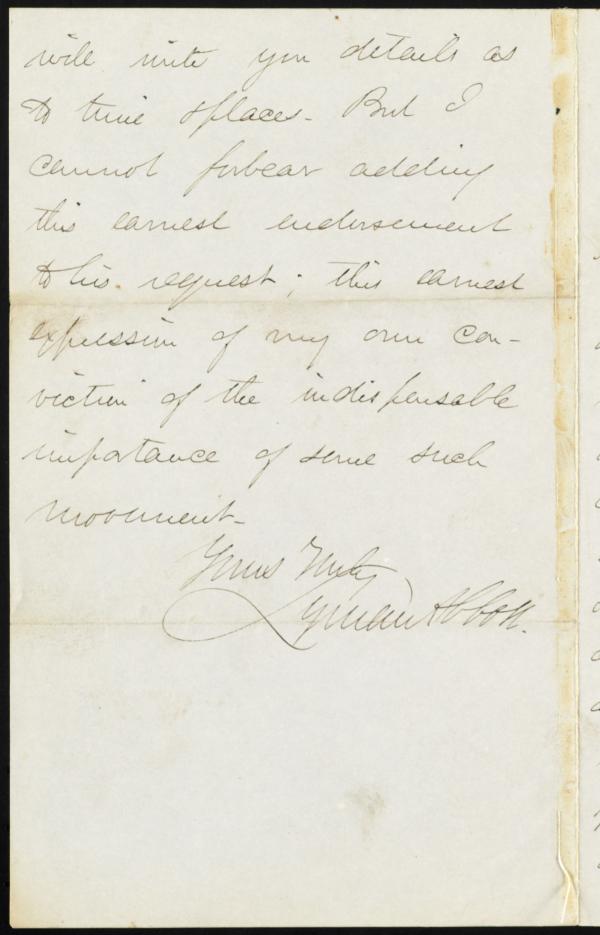 will write you details as
to time & places - But I
cannot forbear adding
this earnest endorsement
to his request; this earnest
expression of my own con-
viction of the indispensable
importance of some such
movement -
Yours Truly
Lyman Abbott.